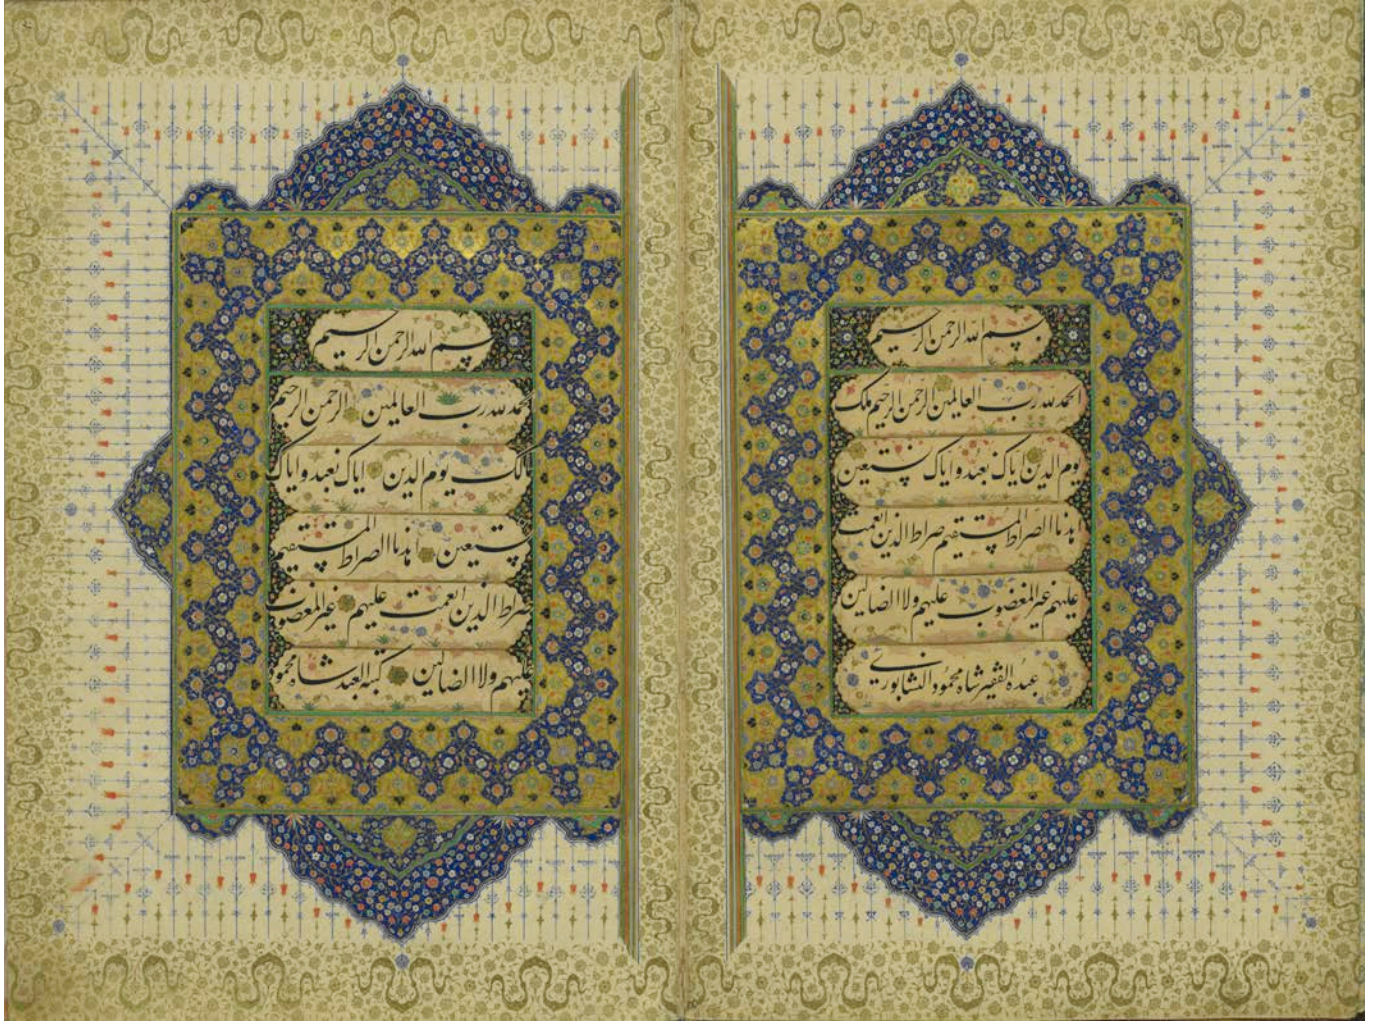 بسم الله الرحمن الرحیم
الحمد لله رب العالمین الرحمن الرحیم ملک
یوم الدین ایاک نعبد و ایاک نستعین
اهدنا الصراط المستقیم صراط الذین انعمت
علیهم غیر المغضوب علیهم ولا الضالین
عبده الفقیر شاه محمود النشابوری
بسم الله الرحمن الرحیم
الحمد لله رب العالمین الرحمن الرحیم
مالک یوم الدین ایاک نعبد و ایاک
نستعین اهدنا الصراط المستقیم
صراط الذین انعمت علیهم غیر المغضوب
علیهم ولا الضالین کتبه العبد شاه محمود